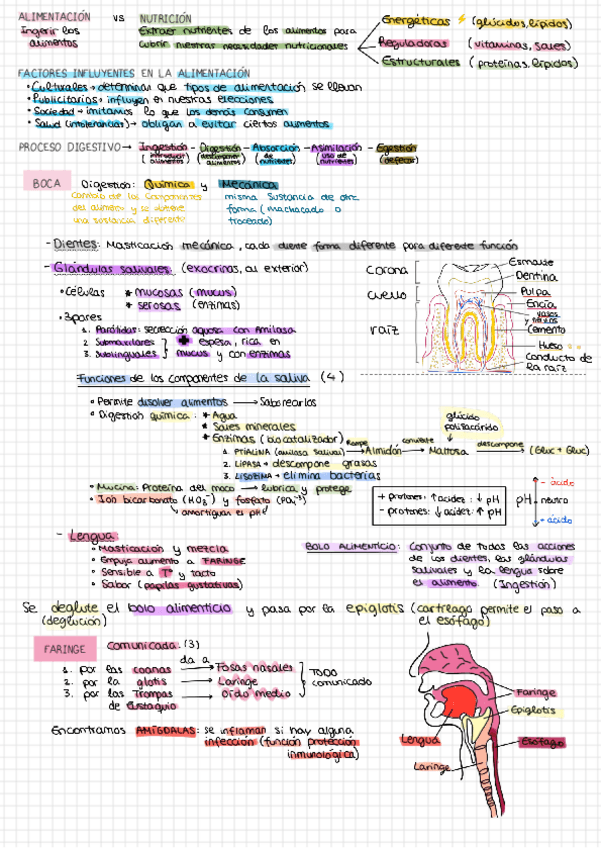 ALIMENTACIÓN vs NUTRICIÓN
Ingerir los alimentos
Extraer nutrientes de los alimentos para
cubrir nuestras necesidades nutricionales
Energéticas (glúcidos, lípidos)
Reguladoras (vitaminas, sales)
Estructurales (proteínas, lípidos)
FACTORES INFLUYENTES EN LA ALIMENTACIÓN
• Culturales → determinan que tipos de alimentación se llevan
• Publicitarios → influyen en nuestras elecciones
• Sociedad → imitamos lo que los demás consumen
• Salud (intolerancias) → obligan a evitar ciertos alimentos
PROCESO DIGESTIVO → Ingestión - Digestión - Absorción - Asimilación - Egestión
(introducir alimentos) (descomponer alimentos) (de nutrientes) (uso de nutrientes) (defecar)
BOCA Digestión: Química y Mecánica
cambio de los componentes
del alimento y se obtiene
una sustancia diferente
misma sustancia de otra
forma (machacado o
troceado)
- Dientes: Masticación mecánica, cada diente forma diferente para diferente función
- Glándulas salivales (exocrinas, al exterior)
• Células * mucosas (mucus)
* serosas (enzimas)
• 3 pares
1. Parótidas: secrección aquosa con Amilasa
2. Submaxilares
3. Sublinguales
+ espesa, rica en
mucus y con enzimas
Corona
cuello
raíz
Esmalte
Dentina
Pulpa
Encía
vasos y nervios
Cemento
Hueso
Conducto de
la raíz
Funciones de los componentes de la saliva (4)
• Permite disolver alimentos → Saborearlos
• Digestión química: * Agua
* Sales minerales
* Enzimas (biocatalizador)
1. PTIALINA (amilasa salival) Rompe → Almidón convierte → Maltosa descompone → (Gluc + Gluc)
glúcido
polisacárido
2. LIPASA → descompone grasas
3. LISOZIMA → elimina bacterias
• Mucina: Proteína del moco → lubrica y protege
• Ion bicarbonato (HO₃⁻) y fosfato (PO₄³⁻)
amortiguan el pH
+ protones: ↑ acidez: ↓ pH
- protones: ↓ acidez: ↑ pH
pH
- ácido
neutro
- ácido
- Lengua
• Masticación y mezcla
• Empuja alimento a FARINGE
• Sensible a Tª y tacto
• Sabor (papilas gustativas)
BOLO ALIMENTICIO: Conjunto de todas las acciones
de los dientes, las glándulas
salivales y la lengua sobre
el alimento. (Ingestión)
Se deglute el bolo alimenticio y pasa por la epiglotis (cartílago permite el paso a
(deglución) el esófago)
FARINGE comunicada: (3)
1. por las coanas da a → Fosas nasales
2. por la glotis → Laringe
3. por las Trompas → oído medio
de Eustaquio
TODO
comunicado
Encontramos AMÍGDALAS: se inflaman si hay alguna
infección (función protección
inmunológica)
Faringe
Epiglotis
Lengua
Esófago
Laringe